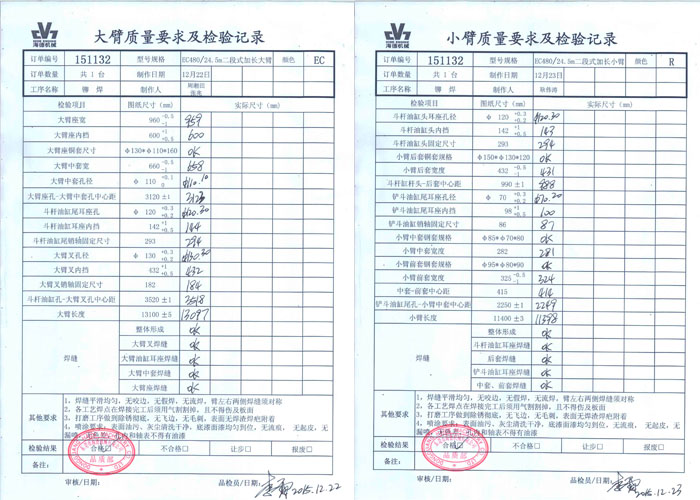 海德机械
大臂质量要求及检验记录
订单编号 151132 型号规格 EC480/24.5m二段式加长大臂 颜色 EC
订单数量 共 1 台 制作日期 12月22日
工序名称 铆 焊 制作人
检验项目 图纸尺寸（mm） 实际尺寸（mm）
大臂座宽 960 -0.5 -1 959
大臂座内档 600 +1 +0.5 600
大臂座铜套尺寸 φ130*φ110*160 OK
大臂中套宽 660 -0.5 -1 658
大臂中套孔径 φ 110 φ110.10
大臂座孔-大臂中套孔中心距 3120 ±1 3123
斗杆油缸尾耳座孔 φ 120 +0.3 +0.2 φ120.30
斗杆油缸耳座内档 142 +1 +0.5 144
斗杆油缸尾销轴固定尺寸 293 294
大臂叉孔径 φ 130 +0.3 +0.2 φ130.30
大臂叉内档 432 +1 +0.5 432
大臂叉销轴固定尺寸 182 184
斗杆油缸孔-大臂叉孔中心距 3520 ±1 3518
大臂长度 13100 ±5 13097
焊缝
整体形成 OK
大臂叉焊缝 OK
大臂油缸耳座焊缝 OK
大臂中套焊缝 OK
大臂座焊缝 OK
其他要求
1、焊缝平滑均匀，无咬边，无假焊，无流焊，臂左右两侧焊缝须对称
2、各工艺焊点在焊接完工后须用气割割掉，且不得伤及板面
3、打磨工序做到除锈彻底，无飞边，无毛刺，表面无焊渣焊疤附着
4、喷涂要求，表面油污、灰尘清洗干净，底漆面漆均匀到位，无流痕，无起皮，无漏喷，无色差，孔内和轴表不得有油漆
检验结果 合格☑ 不合格☐ 让步☐ 报废☐
品质部
备注：
审核/日期： 品检员/日期： 2015.12.22
海德机械
小臂质量要求及检验记录
订单编号 151132 型号规格 EC480/24.5m二段式加长小臂 颜色 R
订单数量 共 1 台 制作日期 12月23日
工序名称 铆 焊 制作人
检验项目 图纸尺寸（mm） 实际尺寸（mm）
斗杆油缸头耳座孔径 φ 120 +0.3 +0.2 φ120.30
斗杆油缸头内挡 142 +1 +0.5 143
斗杆油缸头固定尺寸 293 294
小臂后套铜套规格 φ150*φ130*120 OK
小臂后套宽度 432 -0.5 -1 431
斗杆缸杆头-后套中心距 990 ±1 988
铲斗油缸尾耳座孔径 φ 70 +0.3 +0.2 φ70.20
铲斗油缸尾耳座内挡 98 +1 +0.5 100
铲斗油缸销轴固定尺寸 86 87
小臂中套铜套规格 φ85*φ70*80 OK
小臂中套宽度 282 281
小臂前套钢套规格 φ95*φ80*90 OK
小臂前套宽度 325 -0.5 -1 324
中套-前套中心距 415 414
铲斗油缸尾孔-小臂中套中心距 2250 ±1 2249
小臂长度 11400 ±3 11398
焊缝
整体形成 OK
斗杆缸耳座焊缝 OK
后套焊缝 OK
铲斗缸耳座焊缝 OK
中套、前套焊缝 OK
其他要求
1、焊缝平滑均匀，无咬边，无假焊，无流焊，臂左右两侧焊缝须对称
2、各工艺焊点在焊接完工后须用气割割掉，且不得伤及板面
3、打磨工序做到除锈彻底，无飞边，无毛刺，表面无焊渣焊疤附着
4、喷涂要求，表面油污、灰尘清洗干净，底漆面漆均匀到位，无流痕，无起皮，无漏喷，无色差，孔内和轴表不得有油漆
检验结果 合格☑ 不合格☐ 让步☐ 报废☐
品质部
备注：
审核/日期： 品检员/日期： 2015.12.23